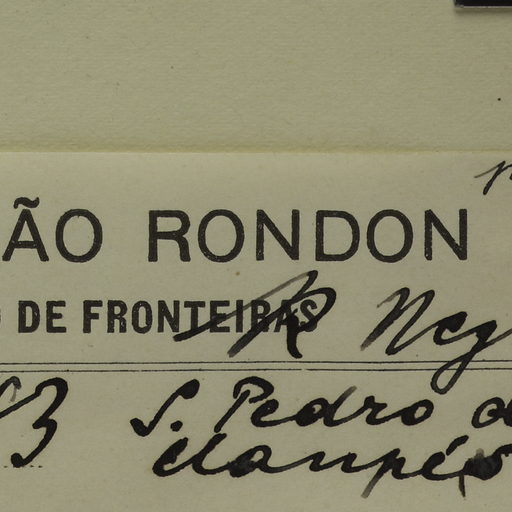 ÃO RONDON
DE FRONTEIRAS R Neg
3 S. Pedro d